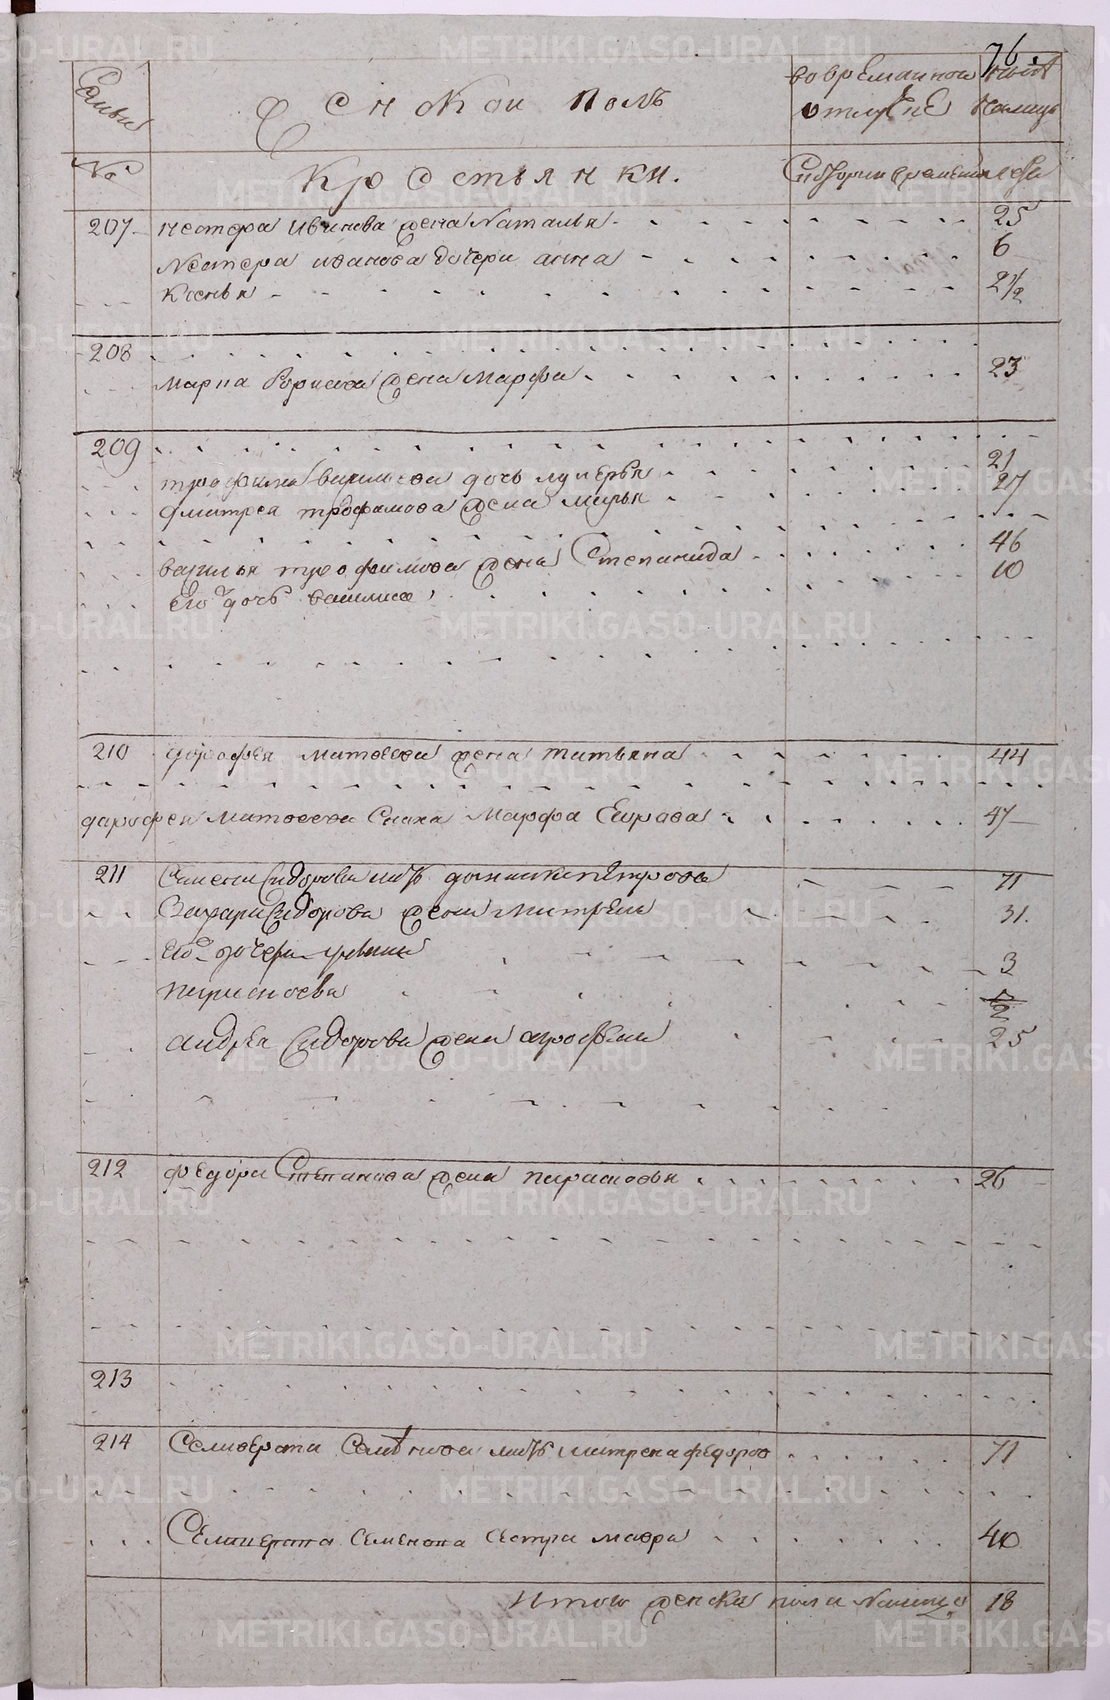 76.
Семьи
Женской полъ
во временной отлучке
ныне на лицо
№
Крестьянки.
лета
207 нестера иванова жена Наталья 25
Нестера иванова дочери анна 6
Ксенья 2 1/2
208
марка борисова жена Марфа 23
209
трофима васильева дочь лукерья 21
дмитрея трофимова жена марья 27
василья трофимова жена Степанида 46
Его дочь василиса 10
210 дорофея матвеева жена татьяна 44
дарофея матвеева сноха Марфа 47
211 Семена Сидорова мать петрова 71
Захара Сидорова жена матрена 31.
его дочери 3
парасковья 2
андрея Сидорова жена агрофена 25
212 федора Степанова жена парасковья 26
213
214 Селиверста Семенова мать матрена федоров 71
Селиверста семенова сестра мавра 40
Итого женска пола налицо 18
METRIKI.GASO-URAL.RU